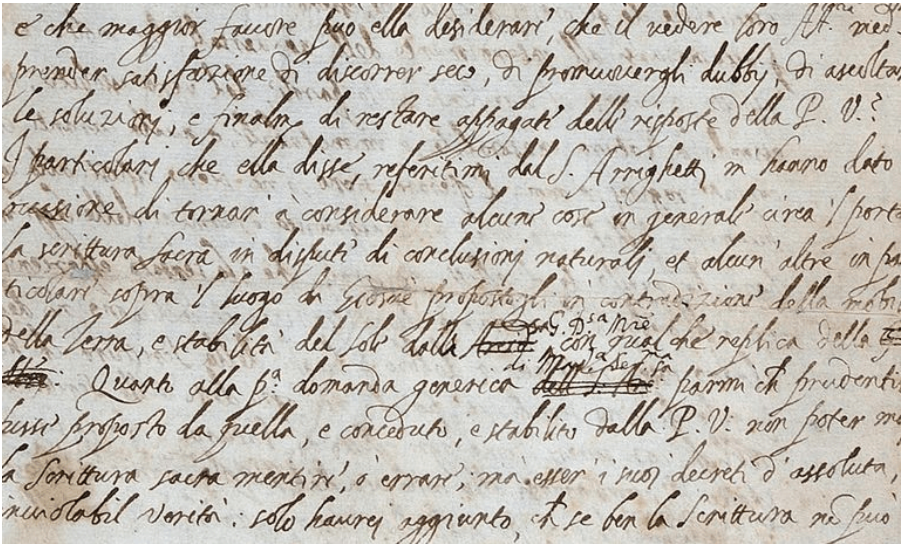 e che maggior favore può ella desiderare, che il vedere loro AA.me med.
prender satisfazione di discorrer seco, di promuovergli dubbij, di ascoltar
le soluzionj, e finalm.e di restare appagate delle risposte della P. V.?
I particolari, che ella disse, referitimi dal S. Arrighetti, m hanno dato
occasione di tornar à considerare alcune cose in generale circa 'l porta
la scrittura sacra in dispute di conclusionj naturali, et alcun' altre in pa
ticolare sopra 'l luogo di Giosuè propostogli in contradizione della mobili
G. D.sa M.re
della Terra, e stabilità del Sole dalla con qualche replica della
di M. Ser.ma
Quanto alla p.a domanda generica parmi ch' prudenti
fusse proposto da quella, e conceduto, e stabilito dalla P. V. non poter ma
la Scrittura sacra mentire, ò errare, ma esser i suoi decreti d' assoluta,
inviolabil verità. solo haurej aggiunto, ch' se ben la Scrittura nō può